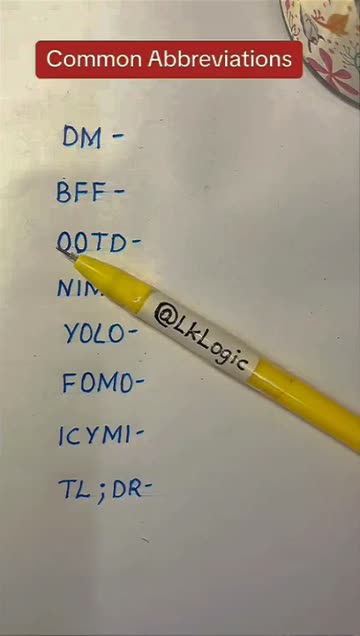 Common Abbreviations
DM -
BFF -
OOTD -
YOLO -
@LkLogic
FOMO -
ICYMI -
TL;DR -